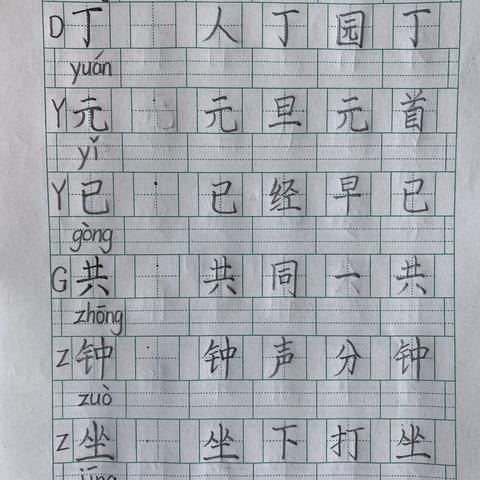 D丁 人丁 园丁
yuán
Y元 元旦 元首
yǐ
Y已 已经 早已
gòng
G共 共同 一共
zhōng
Z钟 钟声 分钟
zuò
Z坐 坐下 打坐